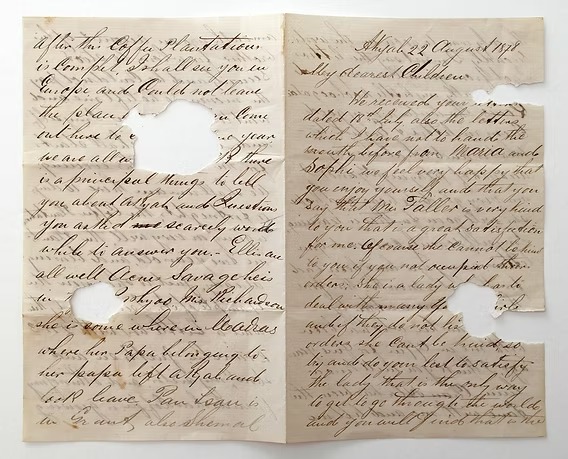 after this Coffee Plantations
is Compl, I shall see you in
Europe and Could not leave
the place Come
out here to year
we are all there
is a principal things to tell
you about and Questions
you asked me scarcely worth
while to answer you - Ellis are
all well Savage he is
in Mrs Richardson
she is some where in Madras
where her Papa belonging to
her papa left and
leave is
in also
22 August 1878
My dearest Children
We received your
dated 18th July also the letters
which I have not to hand the
recently before from Maria and
Sophie we feel very happy that
you enjoy yourself and that you
say that Mr Faller is very kind
to you that is a great satisfaction
for me. Because she cannot be kind
to you if you not
orders: She is a lady who has to
deal with many
and if they do not
orders she cant be kind, so
try and do your best to satisfy
the lady that is the only way
to get to go through the world,
and you will find that is the